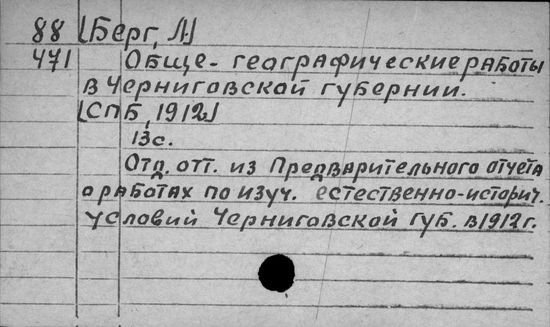 88 [Берг, Л]
471 Обще-географические работы
в Черниговской губернии.
[СПБ, 1912]
13с.
Отд. отт. из Предварительного отчета
о работах по изуч. естественно-историч.
условий Черниговской губ. в 1912 г.